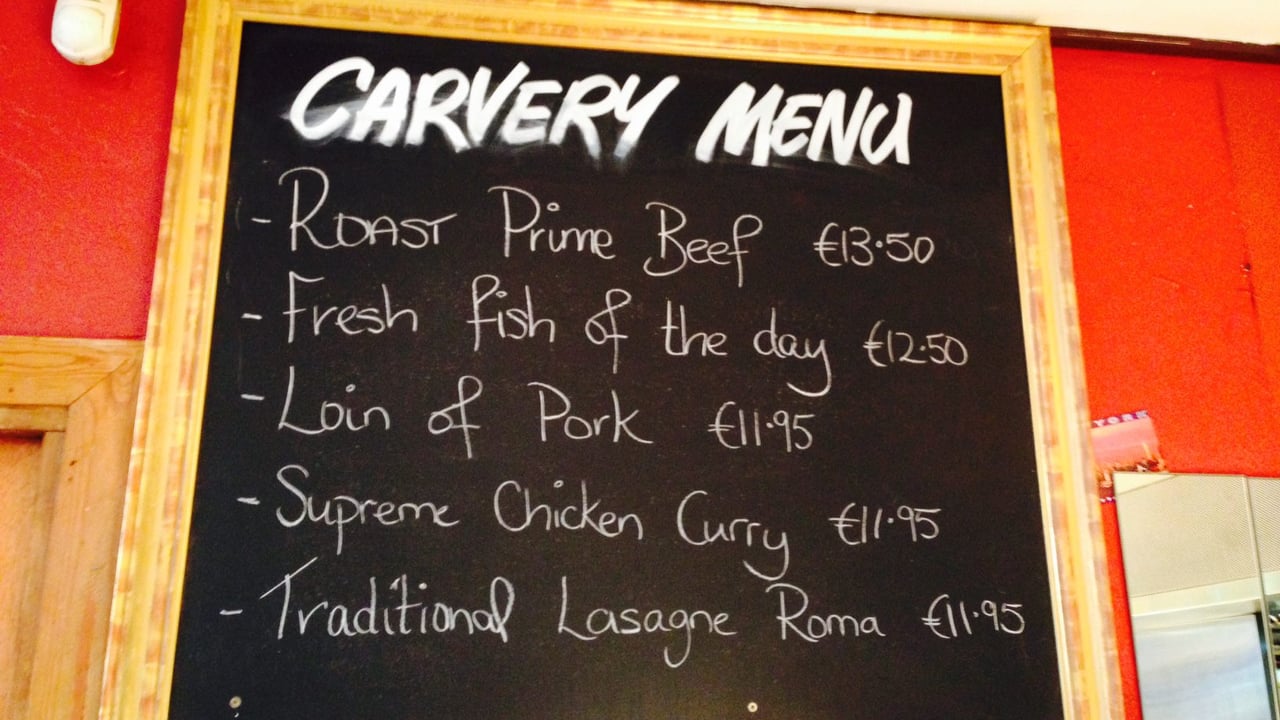 CARVERY MENU
- ROAST Prime Beef €13.50
- Fresh fish of the day €12.50
- Loin of Pork €11.95
- Supreme Chicken Curry €11.95
- Traditional Lasagne Roma €11.95
YORK